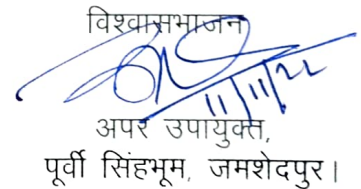 विश्वासभाजन
11/11/22
अपर उपायुक्त,
पूर्वी सिंहभूम, जमशेदपुर।